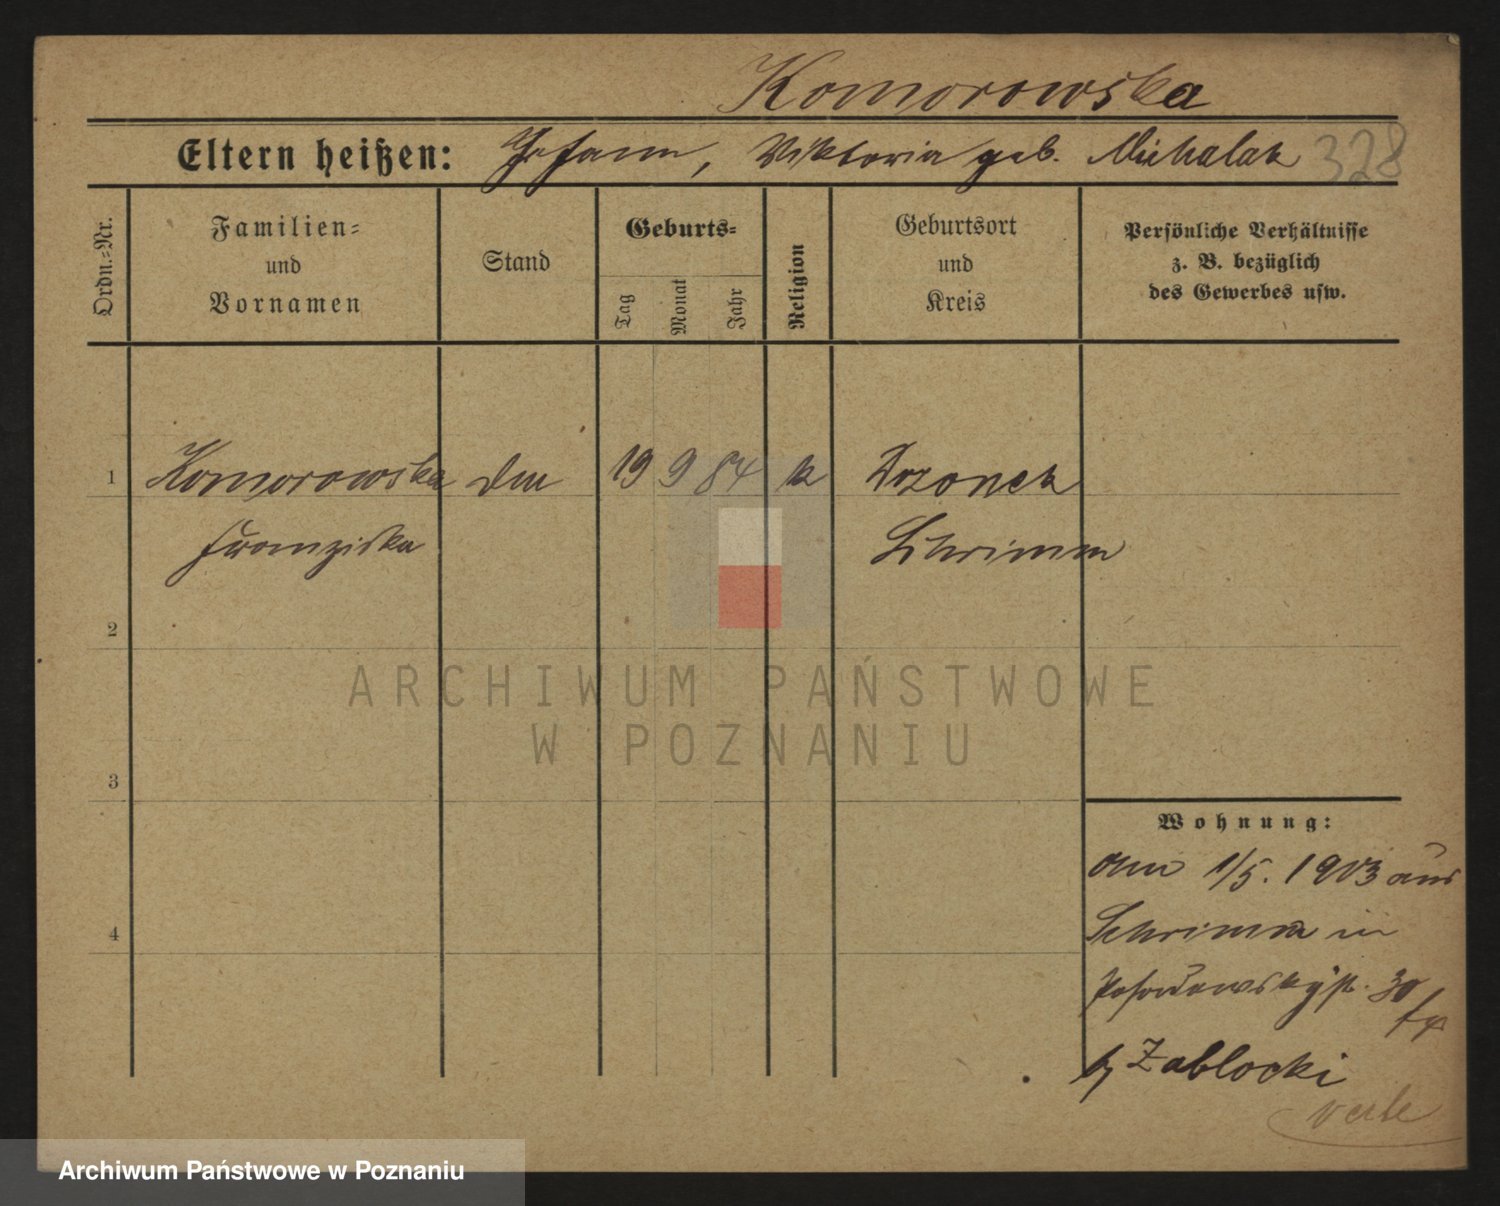 Komorowska
Eltern heißen: Johann, Viktoria geb. Michalak 328
Ordn.-Nr.
Familien-
und
Vornamen
Stand
Geburts-
Tag
Monat
Jahr
Religion
Geburtsort
und
Kreis
Persönliche Verhältnisse
z. B. bezüglich
des Gewerbes usw.
1 Komorowska 19 9 84 k Drzonek
Franziska Schrimm
2
3
4
Wohnung:
Am 1/5. 1903 aus
Schrimm in
30
Zablocki
ARCHIWUM PAŃSTWOWE
W POZNANIU
Archiwum Państwowe w Poznaniu